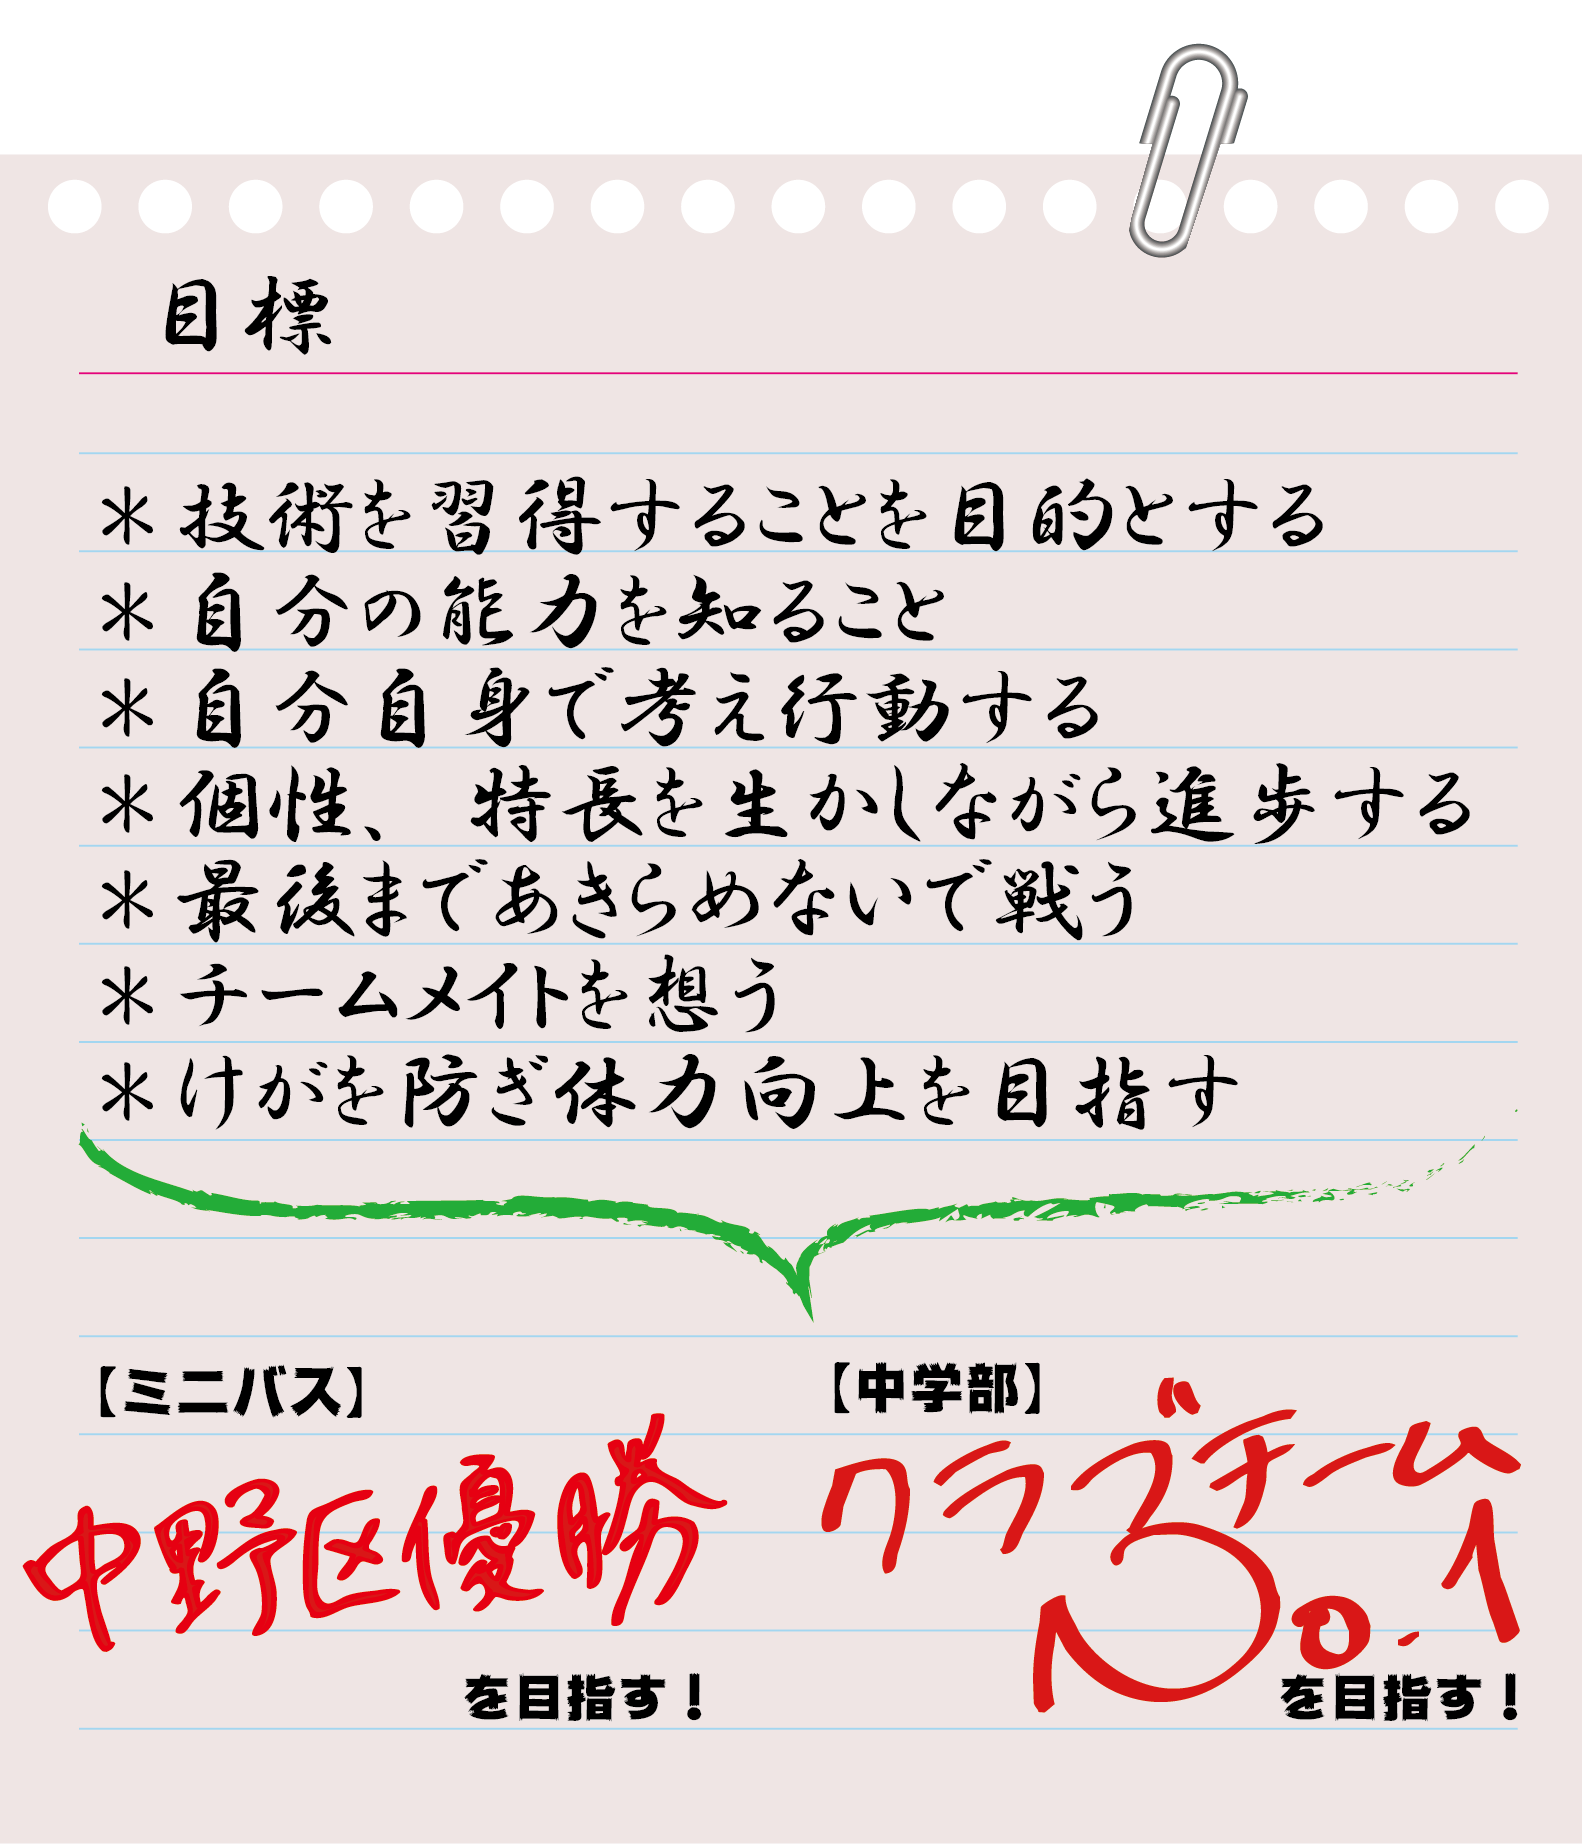 目標
＊技術を習得することを目的とする
＊自分の能力を知ること
＊自分自身で考え行動する
＊個性、特長を生かしながら進歩する
＊最後まであきらめないで戦う
＊チームメイトを想う
＊けがを防ぎ体力向上を目指す
【ミニバス】
中野区優勝
を目指す！
【中学部】
クラブチーム
No.1
を目指す！